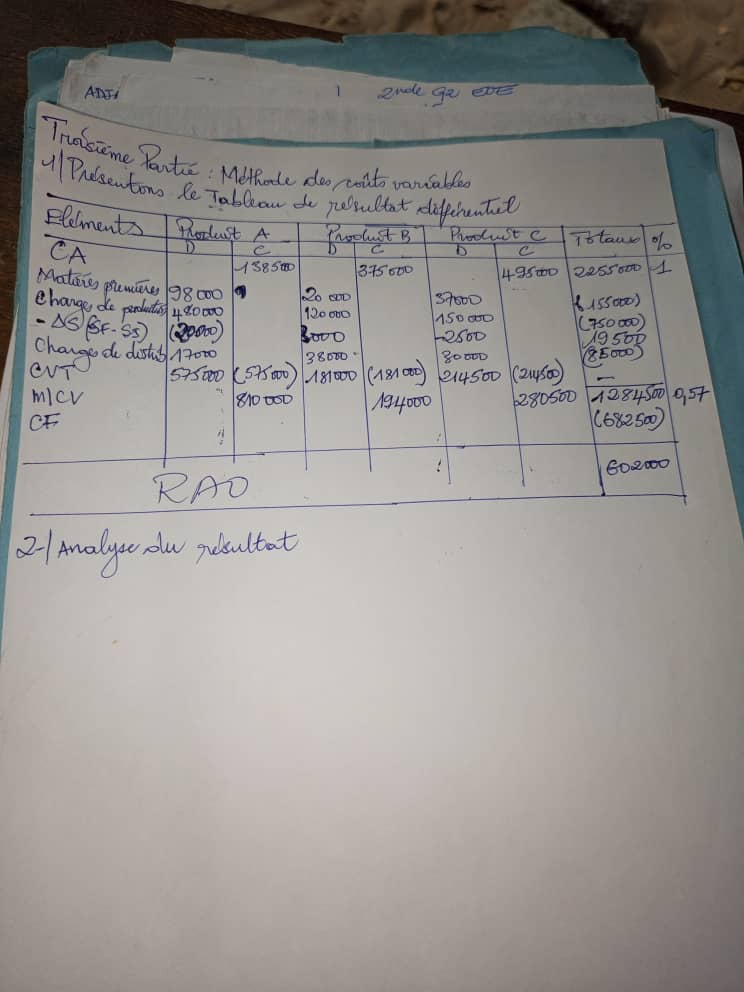 ADJA 1 2nde G2 EDE
Troisième Partie : Méthode des coûts variables
1/ Présentons le Tableau de résultat différentiel
Eléments Produit A Produit B Produit C Totaux %
D C D C D C
CA 138500 375000 495000 2255000 1
Matières premières 98000 20 000 37000 (155000)
Charge de production 480000 120000 150000 (750000)
- ΔS (SF-SS) (20000) 3000 -2500 19500
Charges de distrib 17000 38000 30000 (85000)
CVT 575000 (575000) 181000 (181000) 214500 (214500) —
M/CV 810000 194000 280500 1284500 0,57
CF (682500)
RAO 602000
2-/ Analyse du résultat